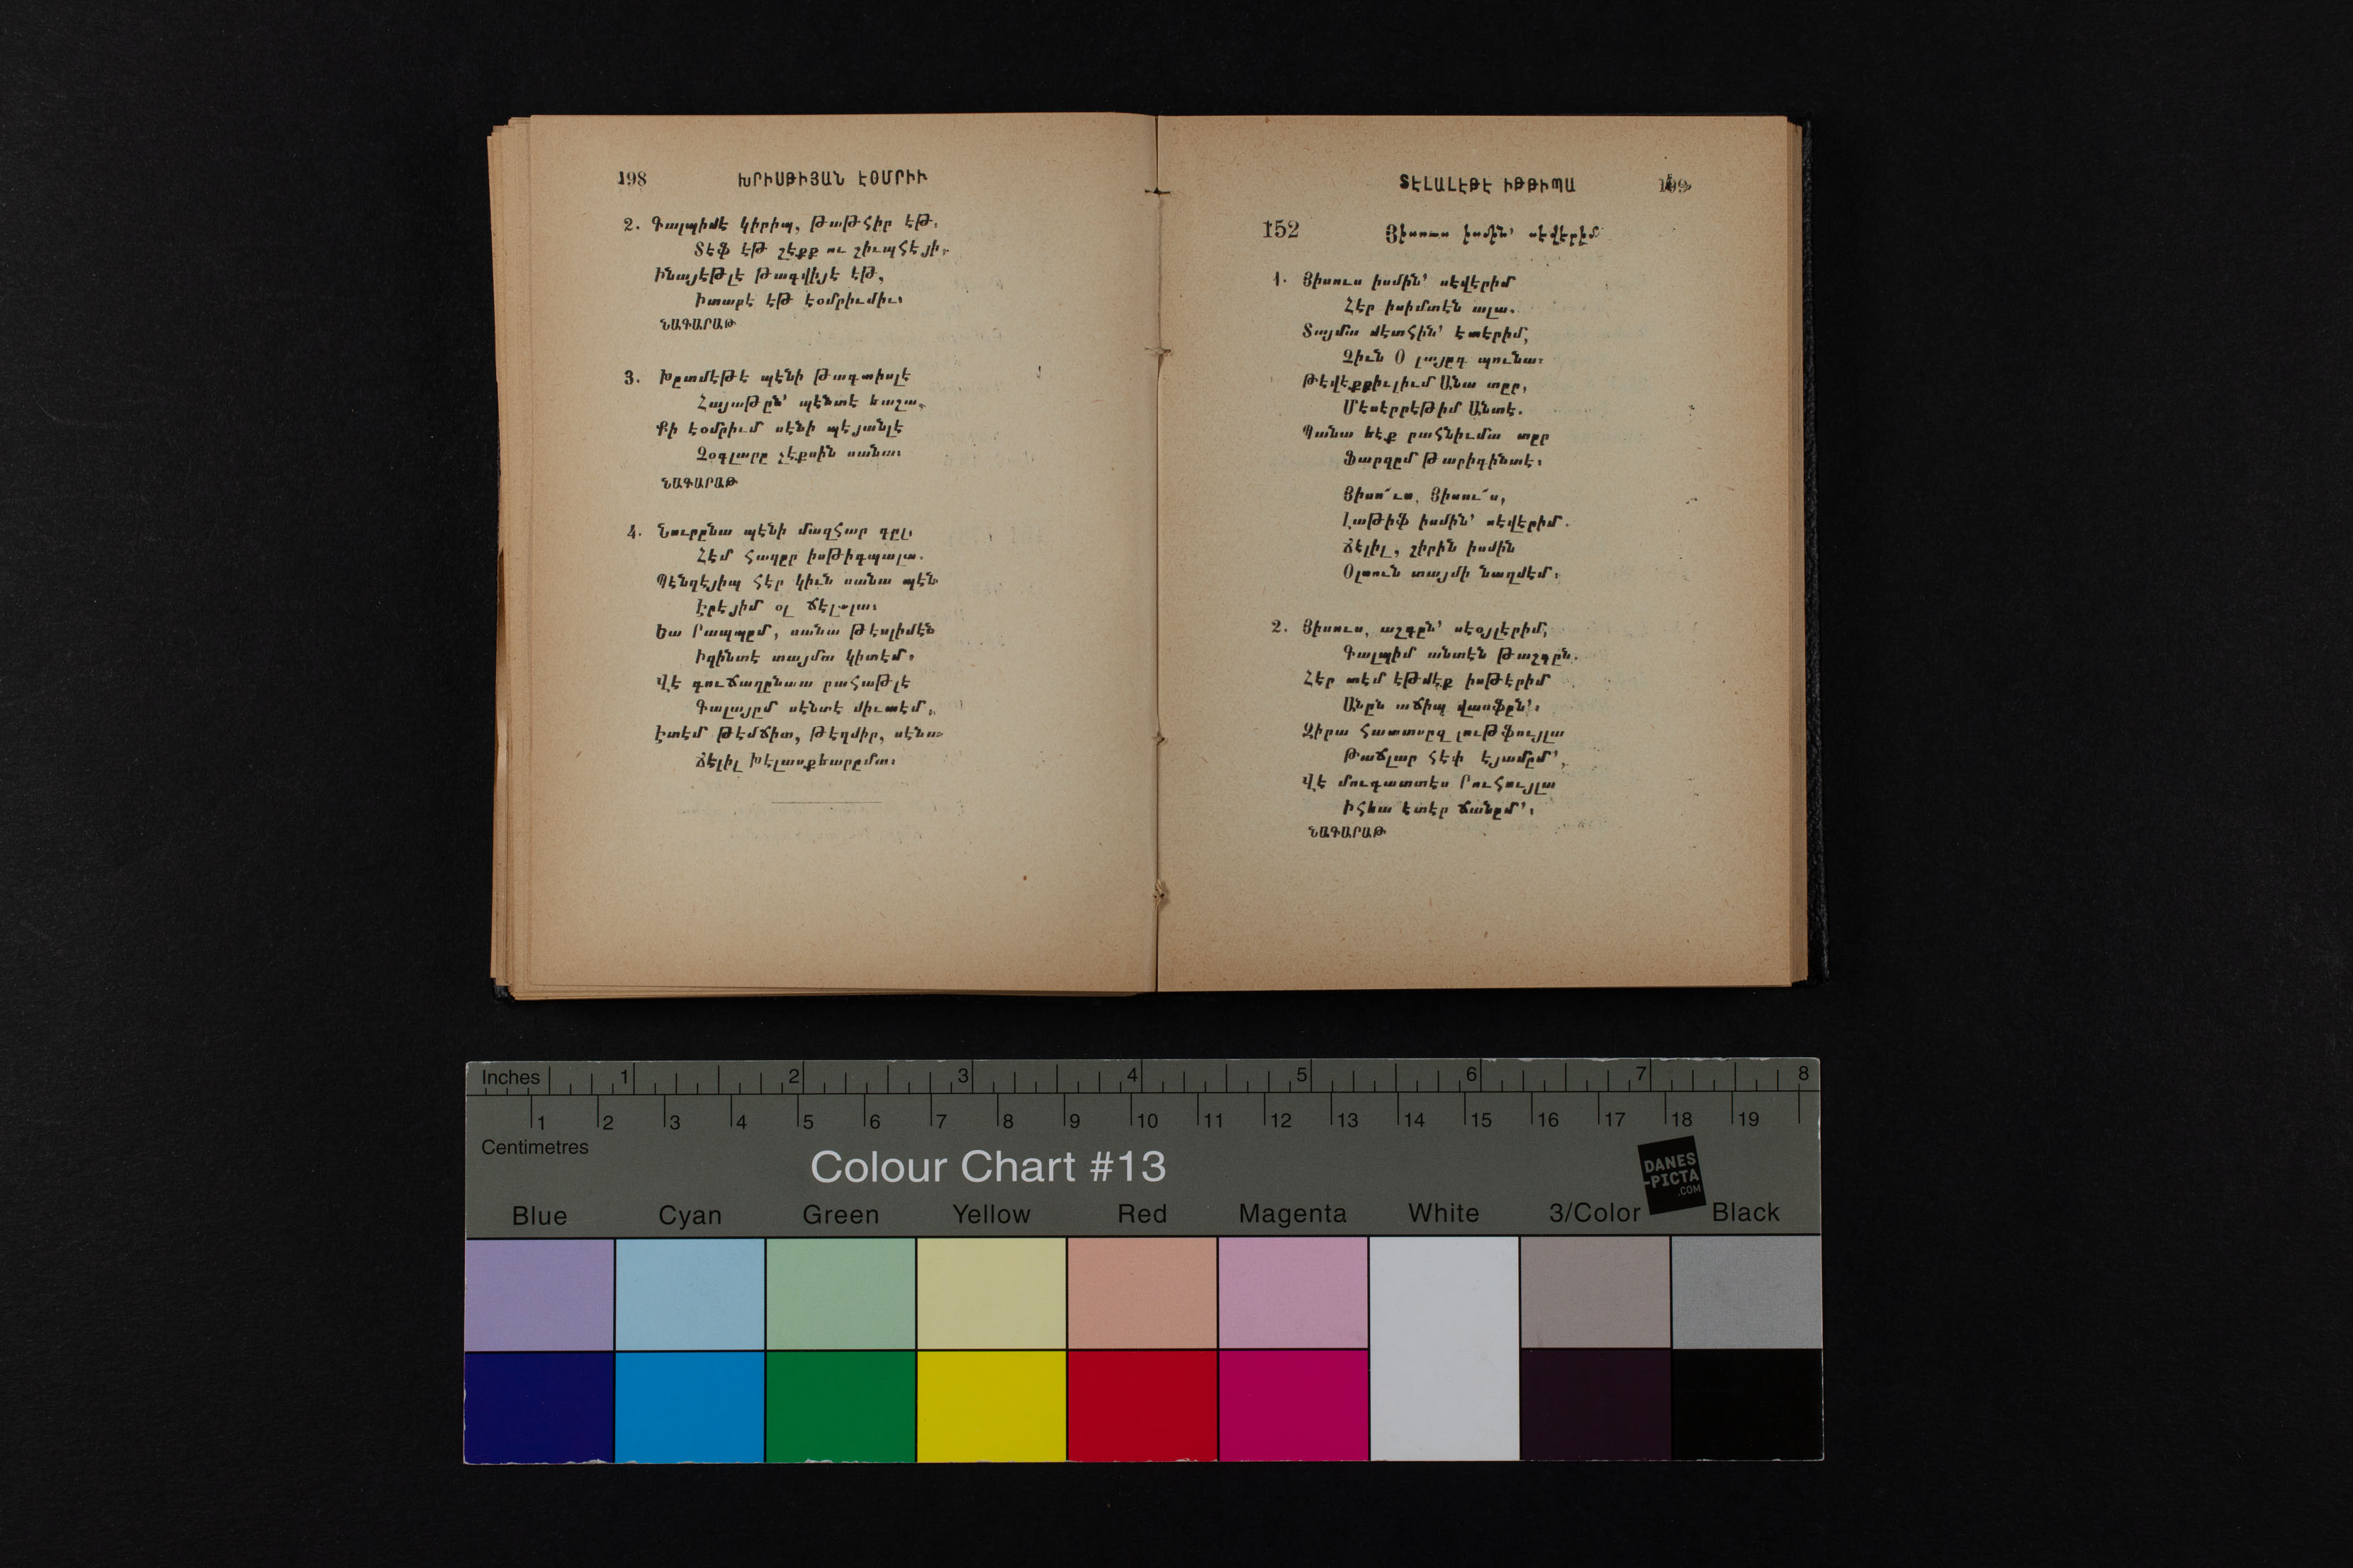 198 ԽՐԻՍԹԻՅԱՆ ԷՕՄՐԻՒ
2. Գալպիմէ կիրիպ, թաթհիր էթ.
Տէֆ էթ շէքք ու շիւպհէյի.
Ինայէթլէ թագվիյէ էթ,
Իտարէ էթ էօմրիւմիւ։
ՆԱԳԱՐԱԹ
3. Խըտմէթէ պէնի թագտիսլէ
Հայաթըն՚ պէնտէ եաշա.
Քի էօմրիւմ սէնի պէյանլէ
Չօգլարը չէքսին սանա։
ՆԱԳԱՐԱԹ
4. Նուրընա պէնի մազհար գըլ,
Հէմ հազըր իսթիգպալա.
Պէնզէյիպ հէր կիւն սանա պէն
Էրէյիմ օլ ճէլալա։
Եա Րապպըմ, սանա թէսլիմէն
Իզինտէ տայմա կիտէմ.
Վէ գուճաղընաա րահաթլէ
Գալայըմ սէնտէ միւտէմ.
Էտէմ թէմճիտ, թէղմիր, սէնա
Ճէլիլ խէլասքեարըմա։
ՏԷԼԱԼԷԹԷ ԻԹԹԻՊԱ 199
152 Յիսուս իսմին՚ սէվէրիմ
1. Յիսուս իսմին՚ սէվէրիմ
Հէր իսիմտէն ալա.
Տայմա մէտհին՚ էտէրիմ,
Չիւն Օ լայըգ պունա։
Թէվէքքիւլիւմ Անա տըր,
Մէսէրրէթիմ Անտէ.
Պանա եէք րահնիւմա տըր
Ֆարզըմ թարիգինտէ։
Յիսո՜ւս, Յիսու՜ս,
Լաթիֆ իսմին՚ սէվէրիմ.
Ճէլիլ, շիրին իսմին
Օլսուն տայմի նաղմէմ։
2. Յիսուս, աշգըն՚ սէօյլէրիմ,
Գալպիմ անտէն թաշգըն.
Հէր տէմ էթմէք իսթէրիմ
Անըն աճիպ վասֆըն՚։
Զիրա հատտսըզ լութֆույլա
Թաճլար հէփ էյամըմ՚,
Վէ մուգատտէս Րուհույլա
Իհեա էտէր ճանըմ՚։
ՆԱԳԱՐԱԹ
Inches 1 2 3 4 5 6 7 8
1 2 3 4 5 6 7 8 9 10 11 12 13 14 15 16 17 18 19
Centimetres
Colour Chart #13
DANES
-PICTA
.COM
Blue Cyan Green Yellow Red Magenta White 3/Color Black